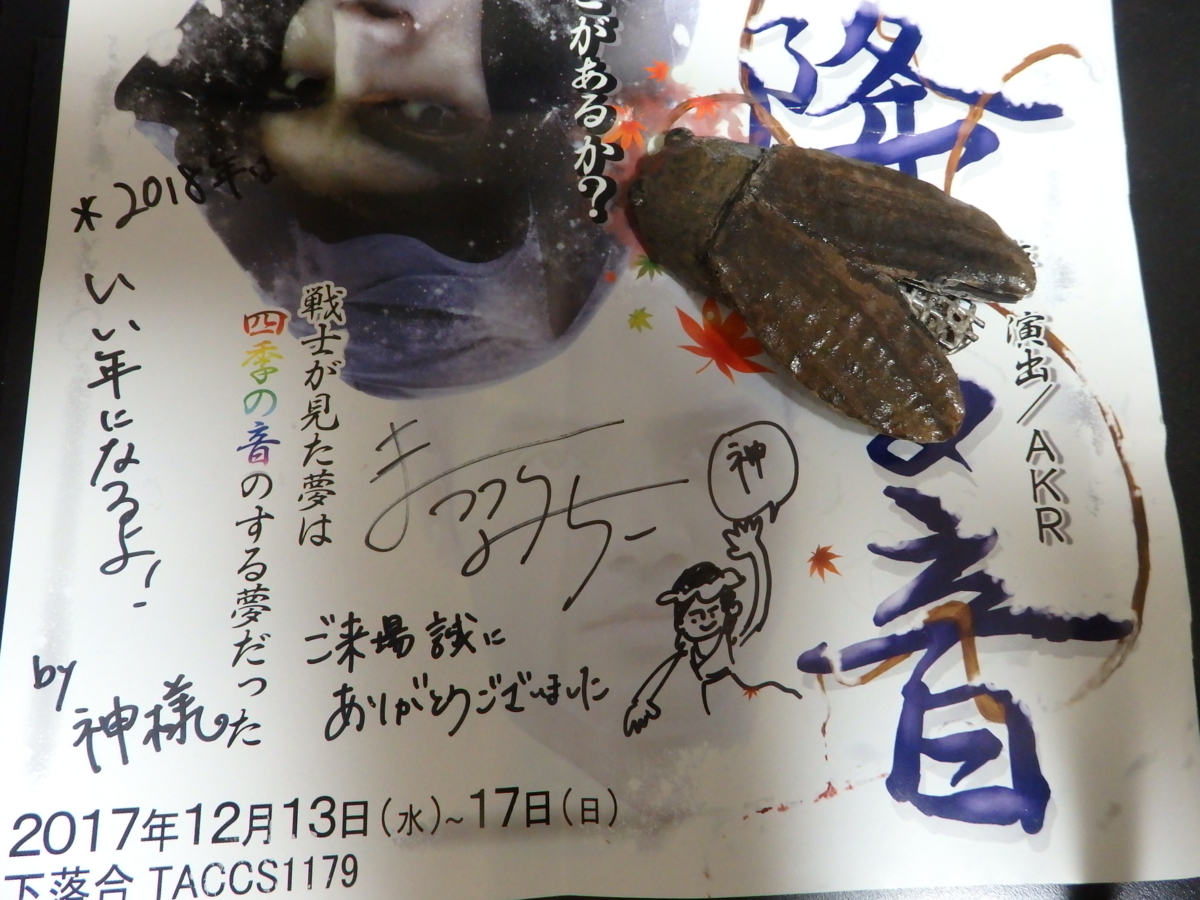 降
る音
演出/AKR
とがあるか?
戦士が見た夢は
四季の音のする夢だった
*2018年は
いい年になるよ!
by
神様
神
ご来場誠に
ありがとうございました
2017年12月13日(水)~17日(日)
下落合 TACCS1179